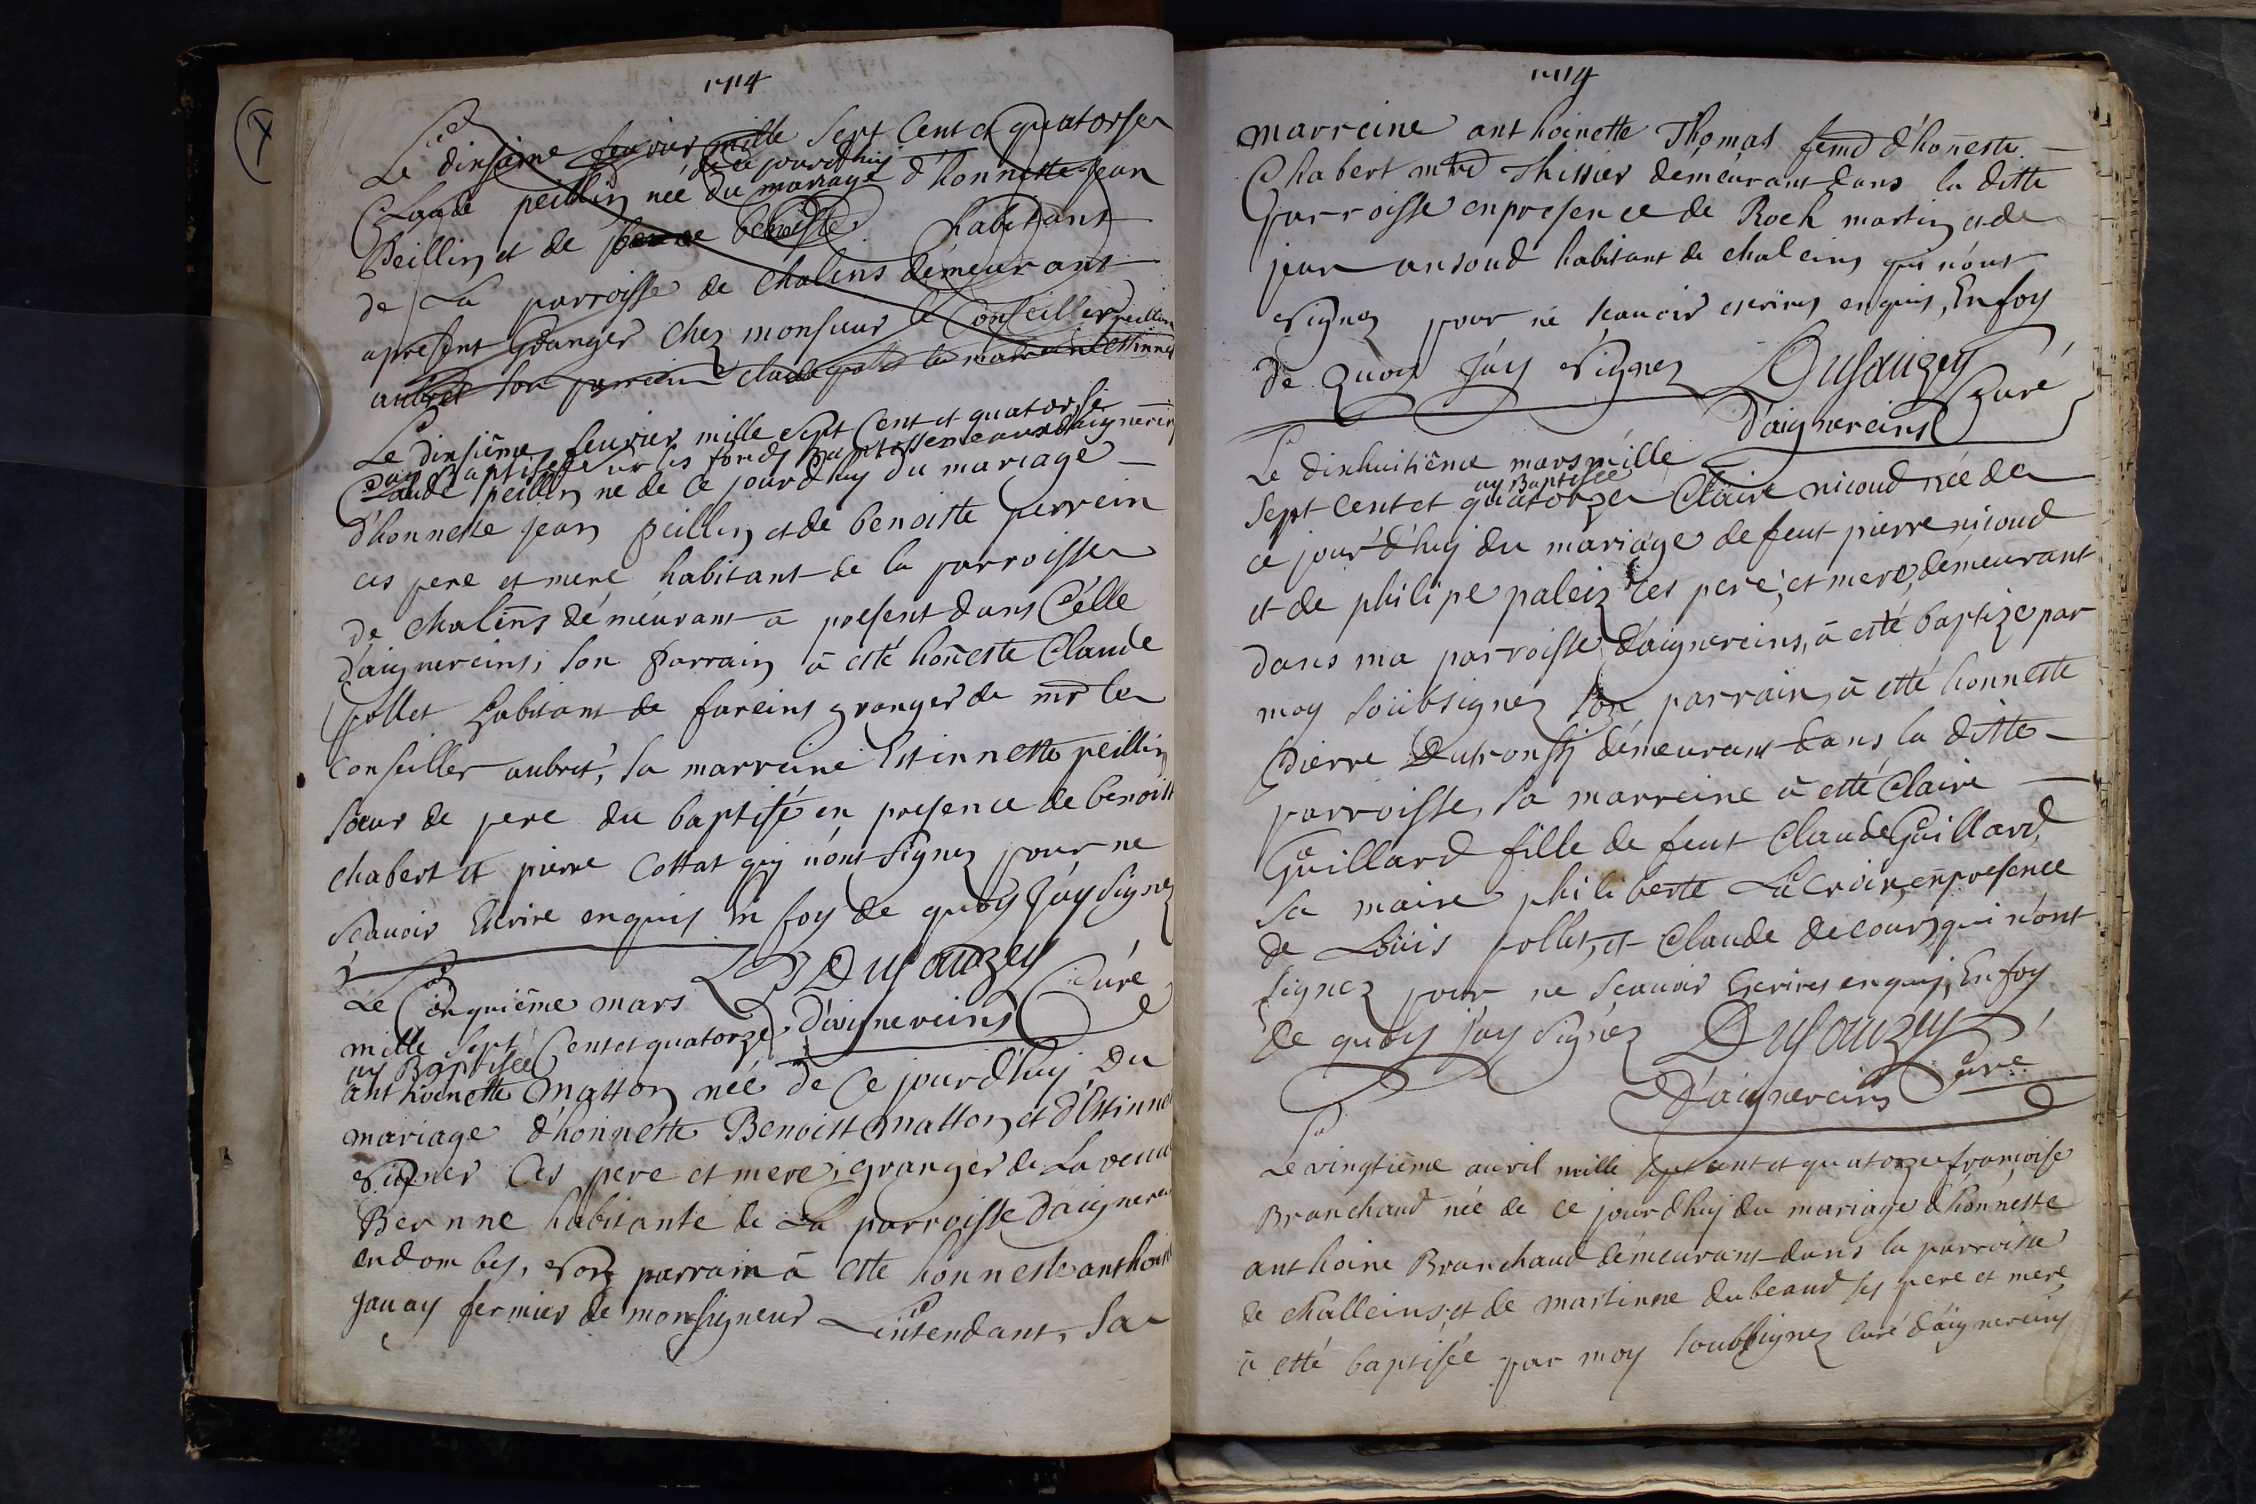 1714
Le dixsieme feuvrier mille sept Cent et quatorse
de ce jourdhuy
Claude peillin née du mariage d'honnette Jean
Peillin et de benoiste habitant
de La parroisse de Chalins demeurant
apresent Granger Chez monsieur le Conseiller
aubret son parrein Claude pollet la marreine Estinnet
peillin
Le dixsiême feuvrier mille sept Cent et quatorse
ay Baptisé sur les fonds Baptissemeaux d'aignerein
Claude peillin né de Ce jourdhuy du mariage
d'honneste Jean peillin et de benoiste perrein
ces pere et mere habitant de la parroisse
de Chalins déméurant a present dans Celle
d'aignereins, son parrain â esté honeste Claude
pollet habitant de fareins granger de mr le
Conseiller aubret, sa marreine Estinnette peillin
soeur de pere du baptisé en presence de benoist
chabert et pierre Cottat quy n'ont signez pour ne
scauoir Escrire enquis En foy de quoy J'ay signez
Dusauzey
Curé
d'aignereins
Le Cinquiême mars
mille sept Cent et quatorze
ay Baptisée
anthoinette Matton née de Ce jourd'huy du
mariage d'honnette Benoist Matton et d'Estinne
Ces pere et mere, granger de La veuue
Bernne habitante de La parroisse d'aignerei
endombes, son parrain â esté honneste anthoine
Januay fermier de monsigneur Lintendant, sa
1714
marreine anthoinette Thomas feme d'honeste
Chabert mtre Thissier démeurant dans la ditte
Parroisse en presence de Roch martin et de
jean ansoud habitant de chaleins qui n'ont
signez pour né scauoir escrires enquis, En foy
de Quoy J'ay signez Dusauzey
Curé
d'aignereins
Le dixhuitiême mars mille
ay Baptisée
sept Cent et quatorze Claire nicoud née de
ce jour d'huy du mariage de feut pierre nicoud
et de philipe paleiz ces peré, et mere, démeurant
dans ma parroisse d'aignereins, â esté baptize par
moy soubsignéz son parrain â etté honneste
Pierre Dutronsy démeurant dans la ditte
parroisse, sa marreine â etté Claire
Guillard fille de feut Claude Guillard,
sa maire philiberte LaCroix, en presence
de Loüis pollet, et Claude decour qui n'ont
signez pour ne scauoir Escrires enquis, En foy
de quoy j'ay signéz Dusauzey
Curé
D'aignereins
Le vingtiême auril mille sept cent et quatorze françoise
Branchaud née de ce jourdhuy du mariage d'honneste
anthoine Branchaud démeurant dans la parroise
de challeins et de martinne dubeaud ses pere et mere
â etté baptisée par moy soubsignez Curé d'aignereins